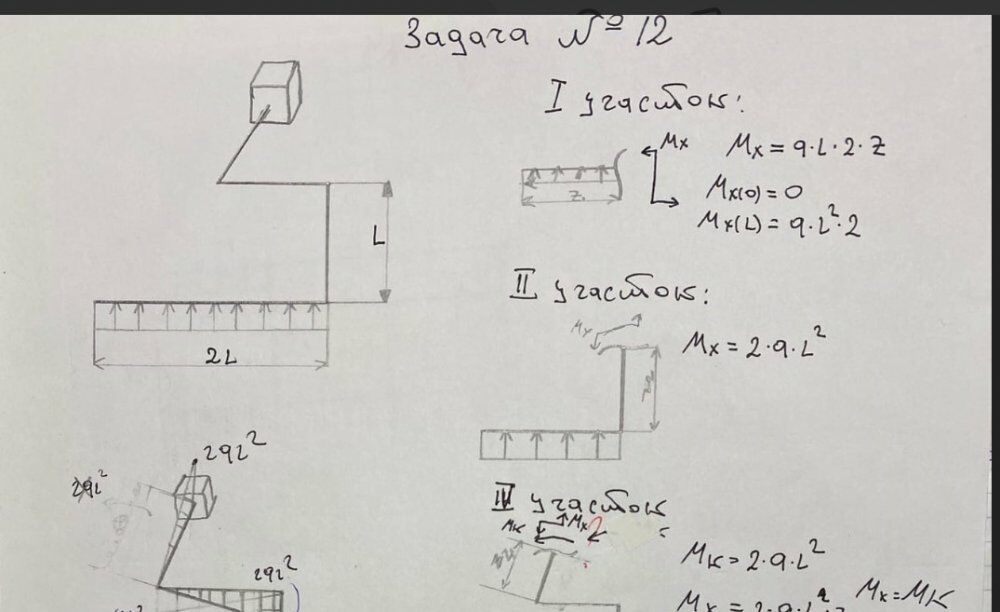 Задача №12
I участок:
Mx
Mx = q·L·2·Z
Z
Mx(0) = 0
Mx(L) = q·L²·2
L
II участок:
2L
Mx
Mx = 2·q·L²
2qL²
2qL²
IV участок
Mк
Mx
Mк = 2·q·L²
2qL²
Mx = Mк